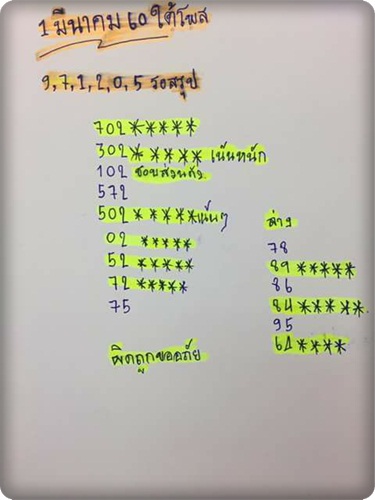 1 มีนาคม 60 ใต้โพส
9,7,1,2,0,5 รอสรุป
702 *****
302 ***** เน้นหนัก
102 ชอบส่วนตัว
572
502 ***** เน้นๆ
02 *****
52 *****
72 *****
75
ล่าง
78
89 *****
86
84 *****
95
61 ****
ผิดถูกขออภัย